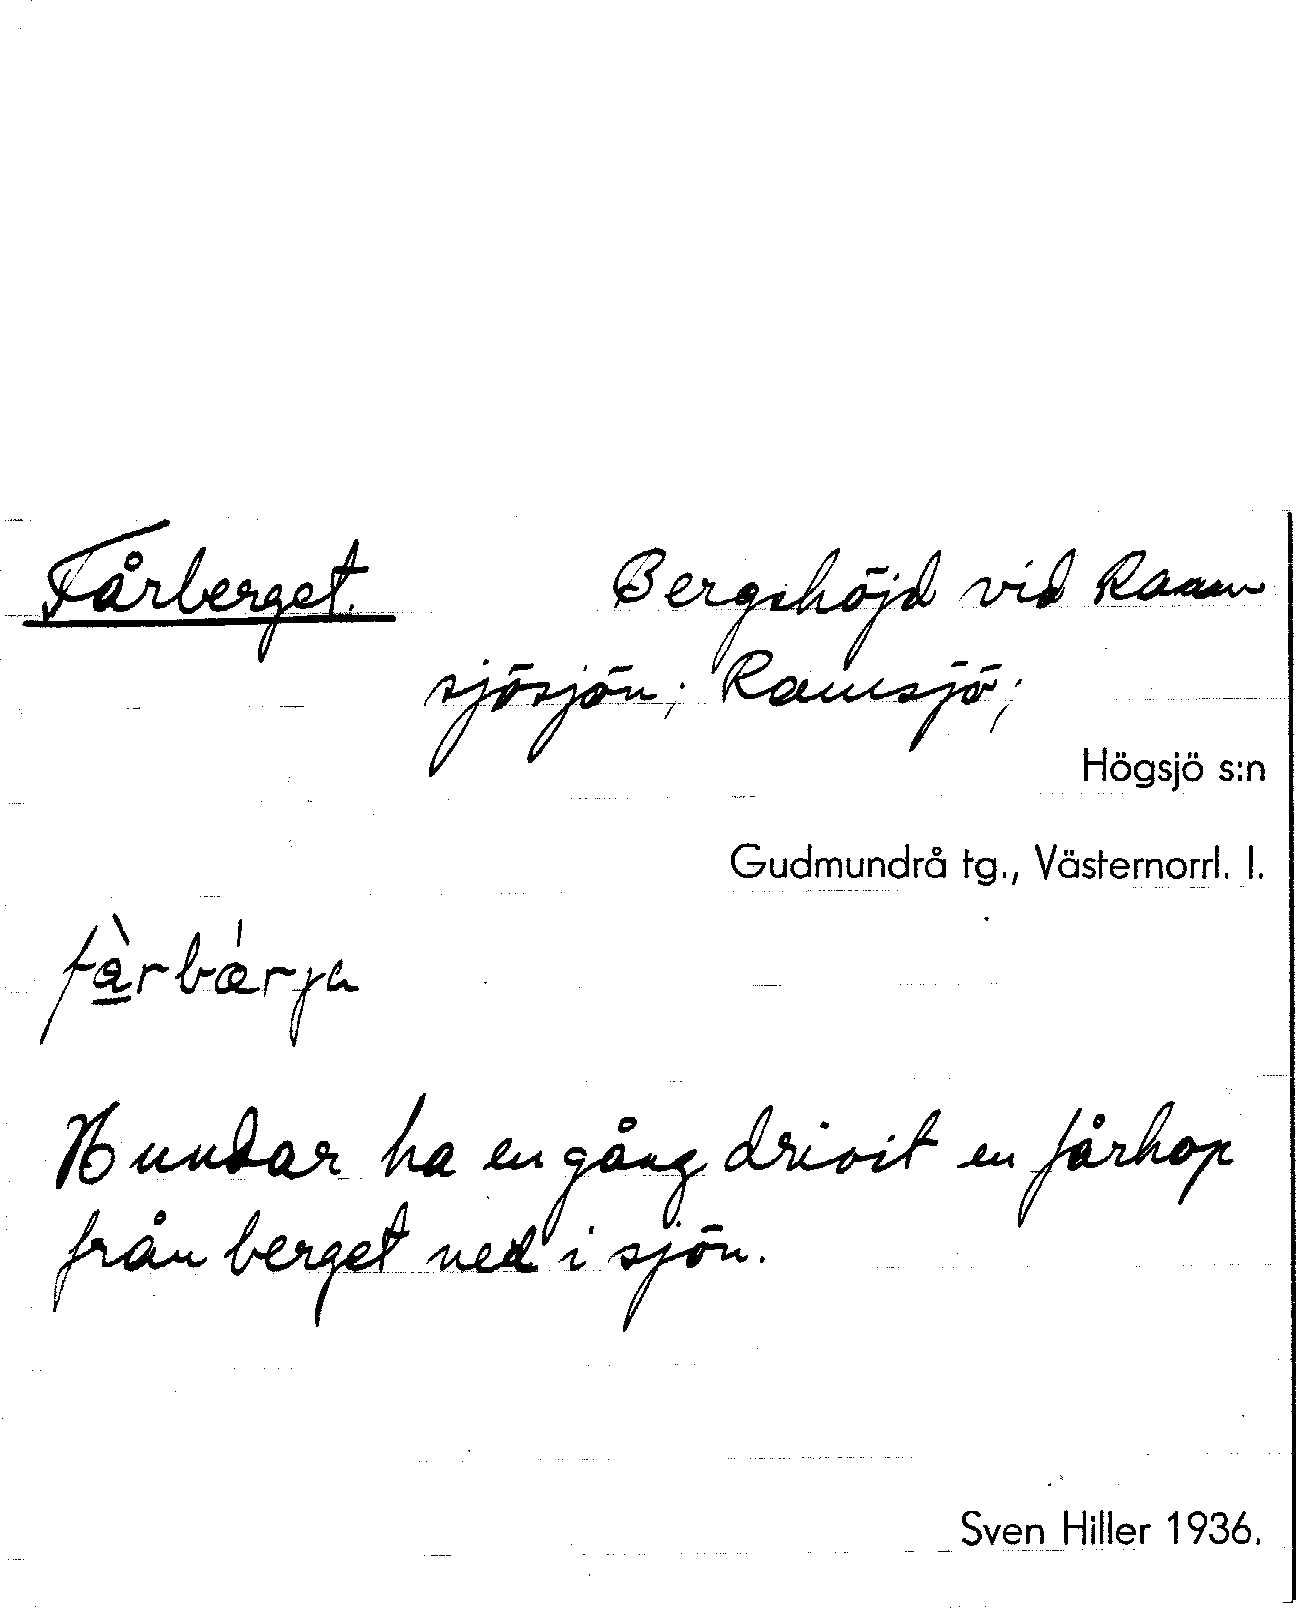 Fårberget. Bergshöjd vid Ram
sjösjön; Ramsjö;
Högsjö s:n
Gudmundrå tg., Västernorrl. l.
Hundar ha en gång drivit en fårhop
från berget ned i sjön.
Sven Hiller 1936.